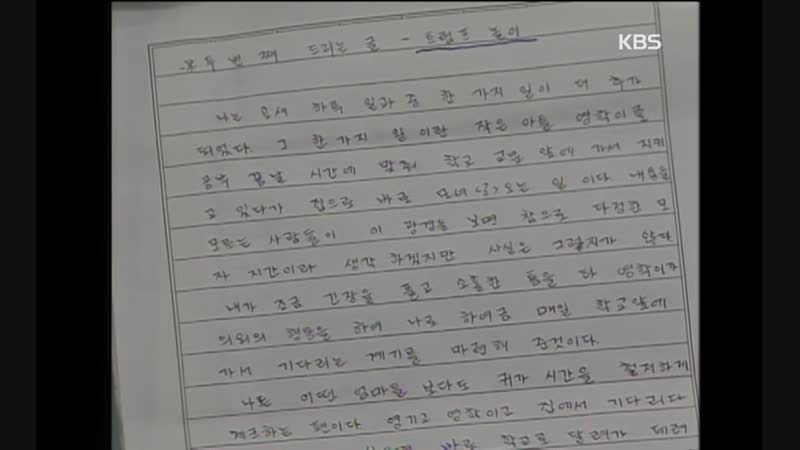 KBS
두 번 째 드리는 글 - 트럼프 놀이
나는 요새 하루 일과 중 한 가지 일이 더 추가
되었다. 그 한 가지 일이란 작은 아들 영학이를
공부 끝날 시간에 맞춰 학교 교문 앞에 가서 지키
고 있다가 집으로 바로 모녀(?)오는 일 이다. 내용을
모르는 사람들이 이 광경을 보면 참으로 다정한 모
자 지간이라 생각 하겠지만 사실은 그렇지가 않다
내가 조금 긴장을 풀고 소홀한 틈을 타 영학이가
의외의 행동을 하여 나로 하여금 매일 학교앞에
가서 기다리는 계기를 마련해 준것이다.
나는 어떤 엄마들 보다도 귀가 시간을 철저하게
체크하는 편이다. 영기고 영학이고 집에서 기다리다
바로 학교로 달려가 데려